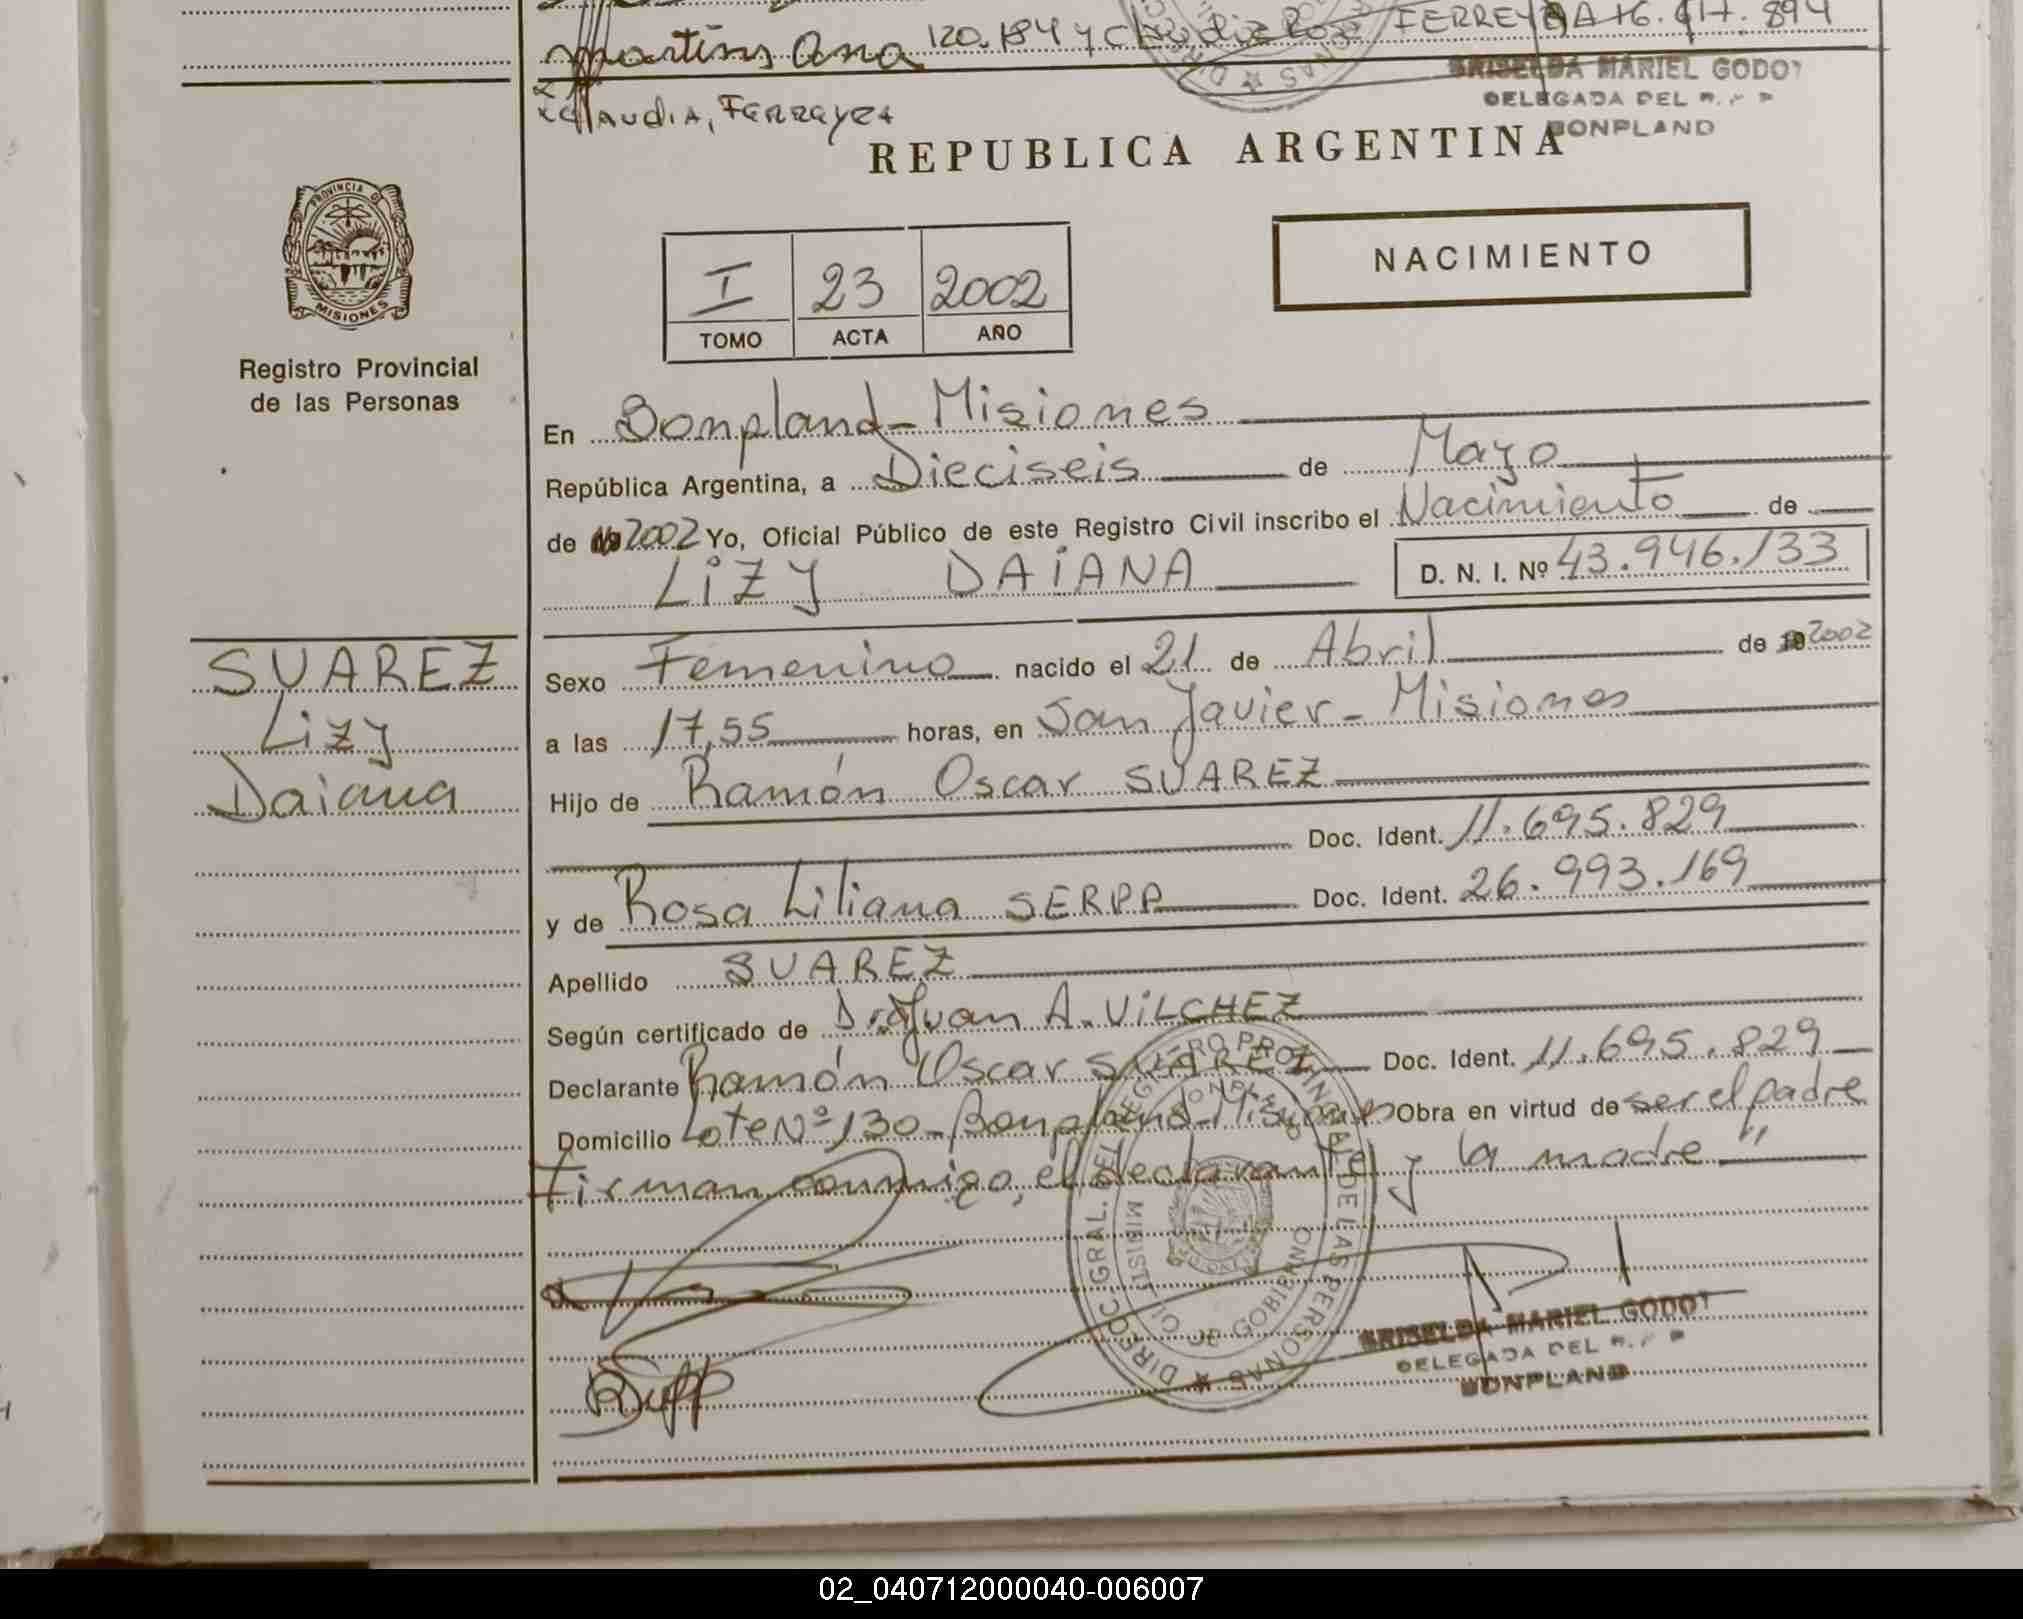 Martins Ana 120.184 y Claudia Rosa FERREYRA 16.917.894
GRISELDA MARIEL GODOY
DELEGADA DEL R. P. P
BONPLAND
Claudia, Ferreyra
REPUBLICA ARGENTINA
PROVINCIA DE
MISIONES
NACIMIENTO
I 23 2002
TOMO ACTA AÑO
Registro Provincial
de las Personas
En Bonpland - Misiones
República Argentina, a Dieciseis de Mayo
de 2002 Yo, Oficial Público de este Registro Civil inscribo el Nacimiento de
LIZY DAIANA D. N. I. Nº 43.946.133
SUAREZ
Lizy
Daiana
Sexo Femenino nacido el 21 de Abril de 2002
a las 17,55 horas, en San Javier - Misiones
Hijo de Ramón Oscar SUAREZ
Doc. Ident. 11.695.829
y de Rosa Liliana SERPP Doc. Ident. 26.993.169
Apellido SUAREZ
Según certificado de Dr. Juan A. VILCHEZ
Declarante Ramón Oscar SUAREZ Doc. Ident. 11.695.829
Domicilio Lote Nº 130 - Bonpland - Misiones Obra en virtud de ser el padre
Firman conmigo, el declarante y la madre "
DIREC. GRAL. DEL REGISTRO PROVINCIAL DE LAS PERSONAS
BONPLAND
MINISTERIO DE GOBIERNO
MISIONES
GRISELDA MARIEL GODOY
DELEGADA DEL R. P. P
BONPLAND
02_040712000040-006007